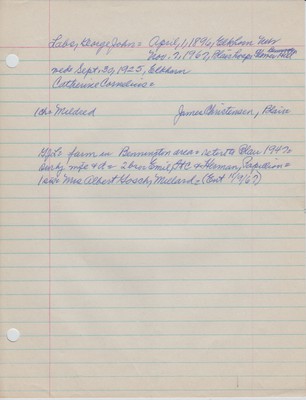 Labs, George John = April, 1, 1896, Elkhorn Neb
Nov. 7, 1967, Blair hosp=
wed= Sept. 30, 1925, Elkhorn
Catherine Cornelius=
1 ch= Mildred James Christensen, Blair
farm in Bennington area= retired to Blair 1947=
surv= wife & d= 2 bros= Emil, & Herman, Papillion=
1 sis= Mrs Albert Gosch, Millard= (Ent 11/9/67)